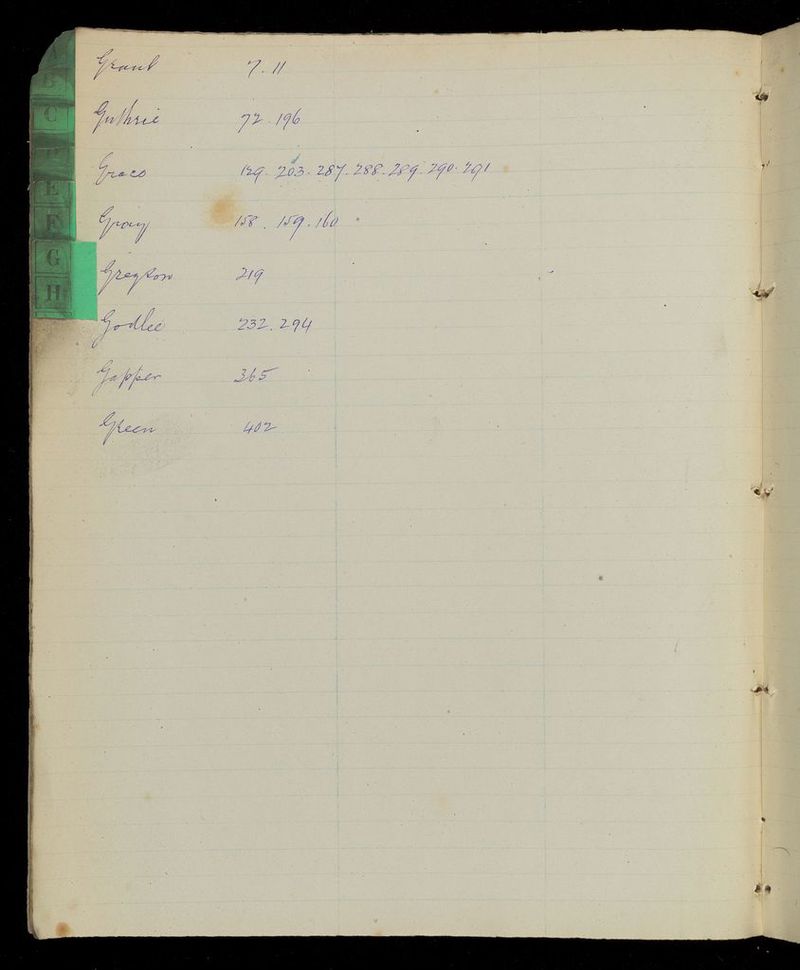 Grant 7. 11
Guthrie 72. 196
Graco 129. 203. 287. 288. 289. 290. 291
Gray 158. 159. 160
Greyson 219
Godlee 232. 294
Gapper 365
Green 402
C
D
E
F
G
H